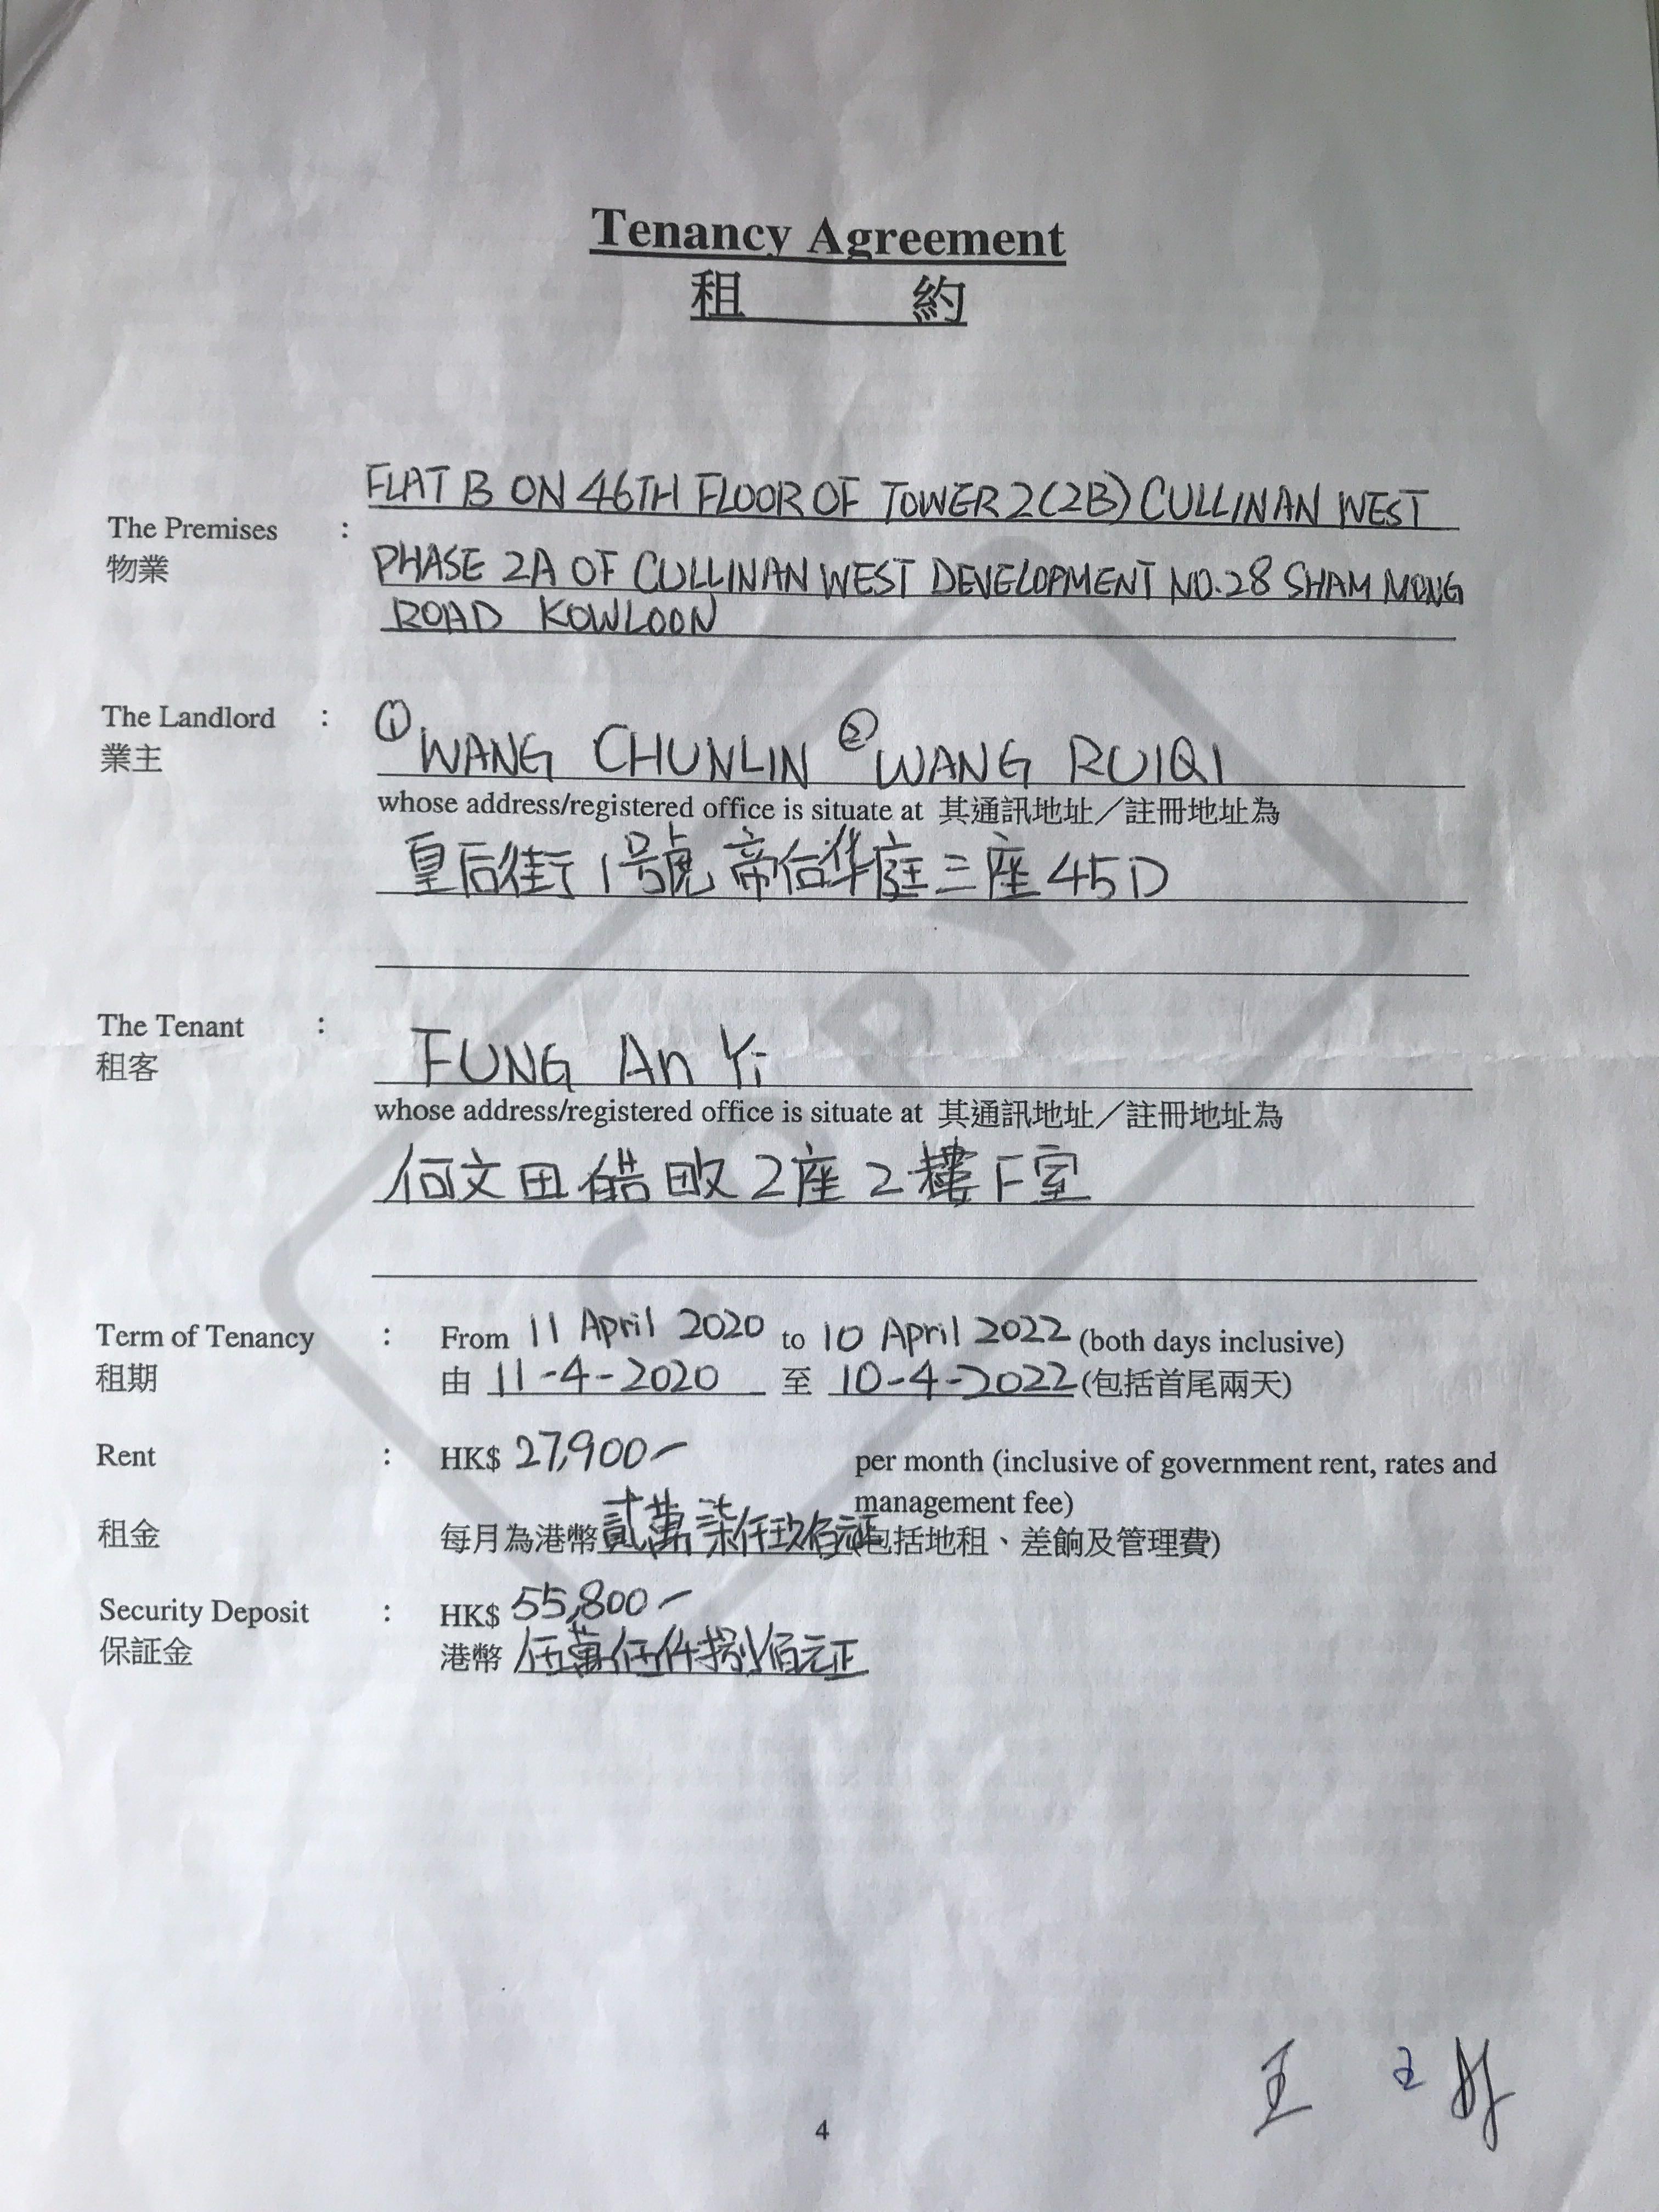 Tenancy Agreement
租 約
FLAT B ON 46TH FLOOR OF TOWER 2(2B) CULLINAN WEST
The Premises :
物業
PHASE 2A OF CULLINAN WEST DEVELOPMENT NO.28 SHAM MONG
ROAD KOWLOON
The Landlord : ① WANG CHUNLIN ② WANG RUIQI
業主
whose address/registered office is situate at 其通訊地址／註冊地址為
皇后街1號帝后華庭三座45D
The Tenant : FUNG An Yi
租客
whose address/registered office is situate at 其通訊地址／註冊地址為
何文田皓畋2座2樓F室
Term of Tenancy : From 11 April 2020 to 10 April 2022 (both days inclusive)
租期 由 11-4-2020 至 10-4-2022 (包括首尾兩天)
Rent : HK$ 27,900- per month (inclusive of government rent, rates and
management fee)
租金 每月為港幣貳萬柒仟玖佰元正(包括地租、差餉及管理費)
Security Deposit : HK$ 55,800-
保証金 港幣 伍萬伍仟捌佰元正
王 王
4
COPY